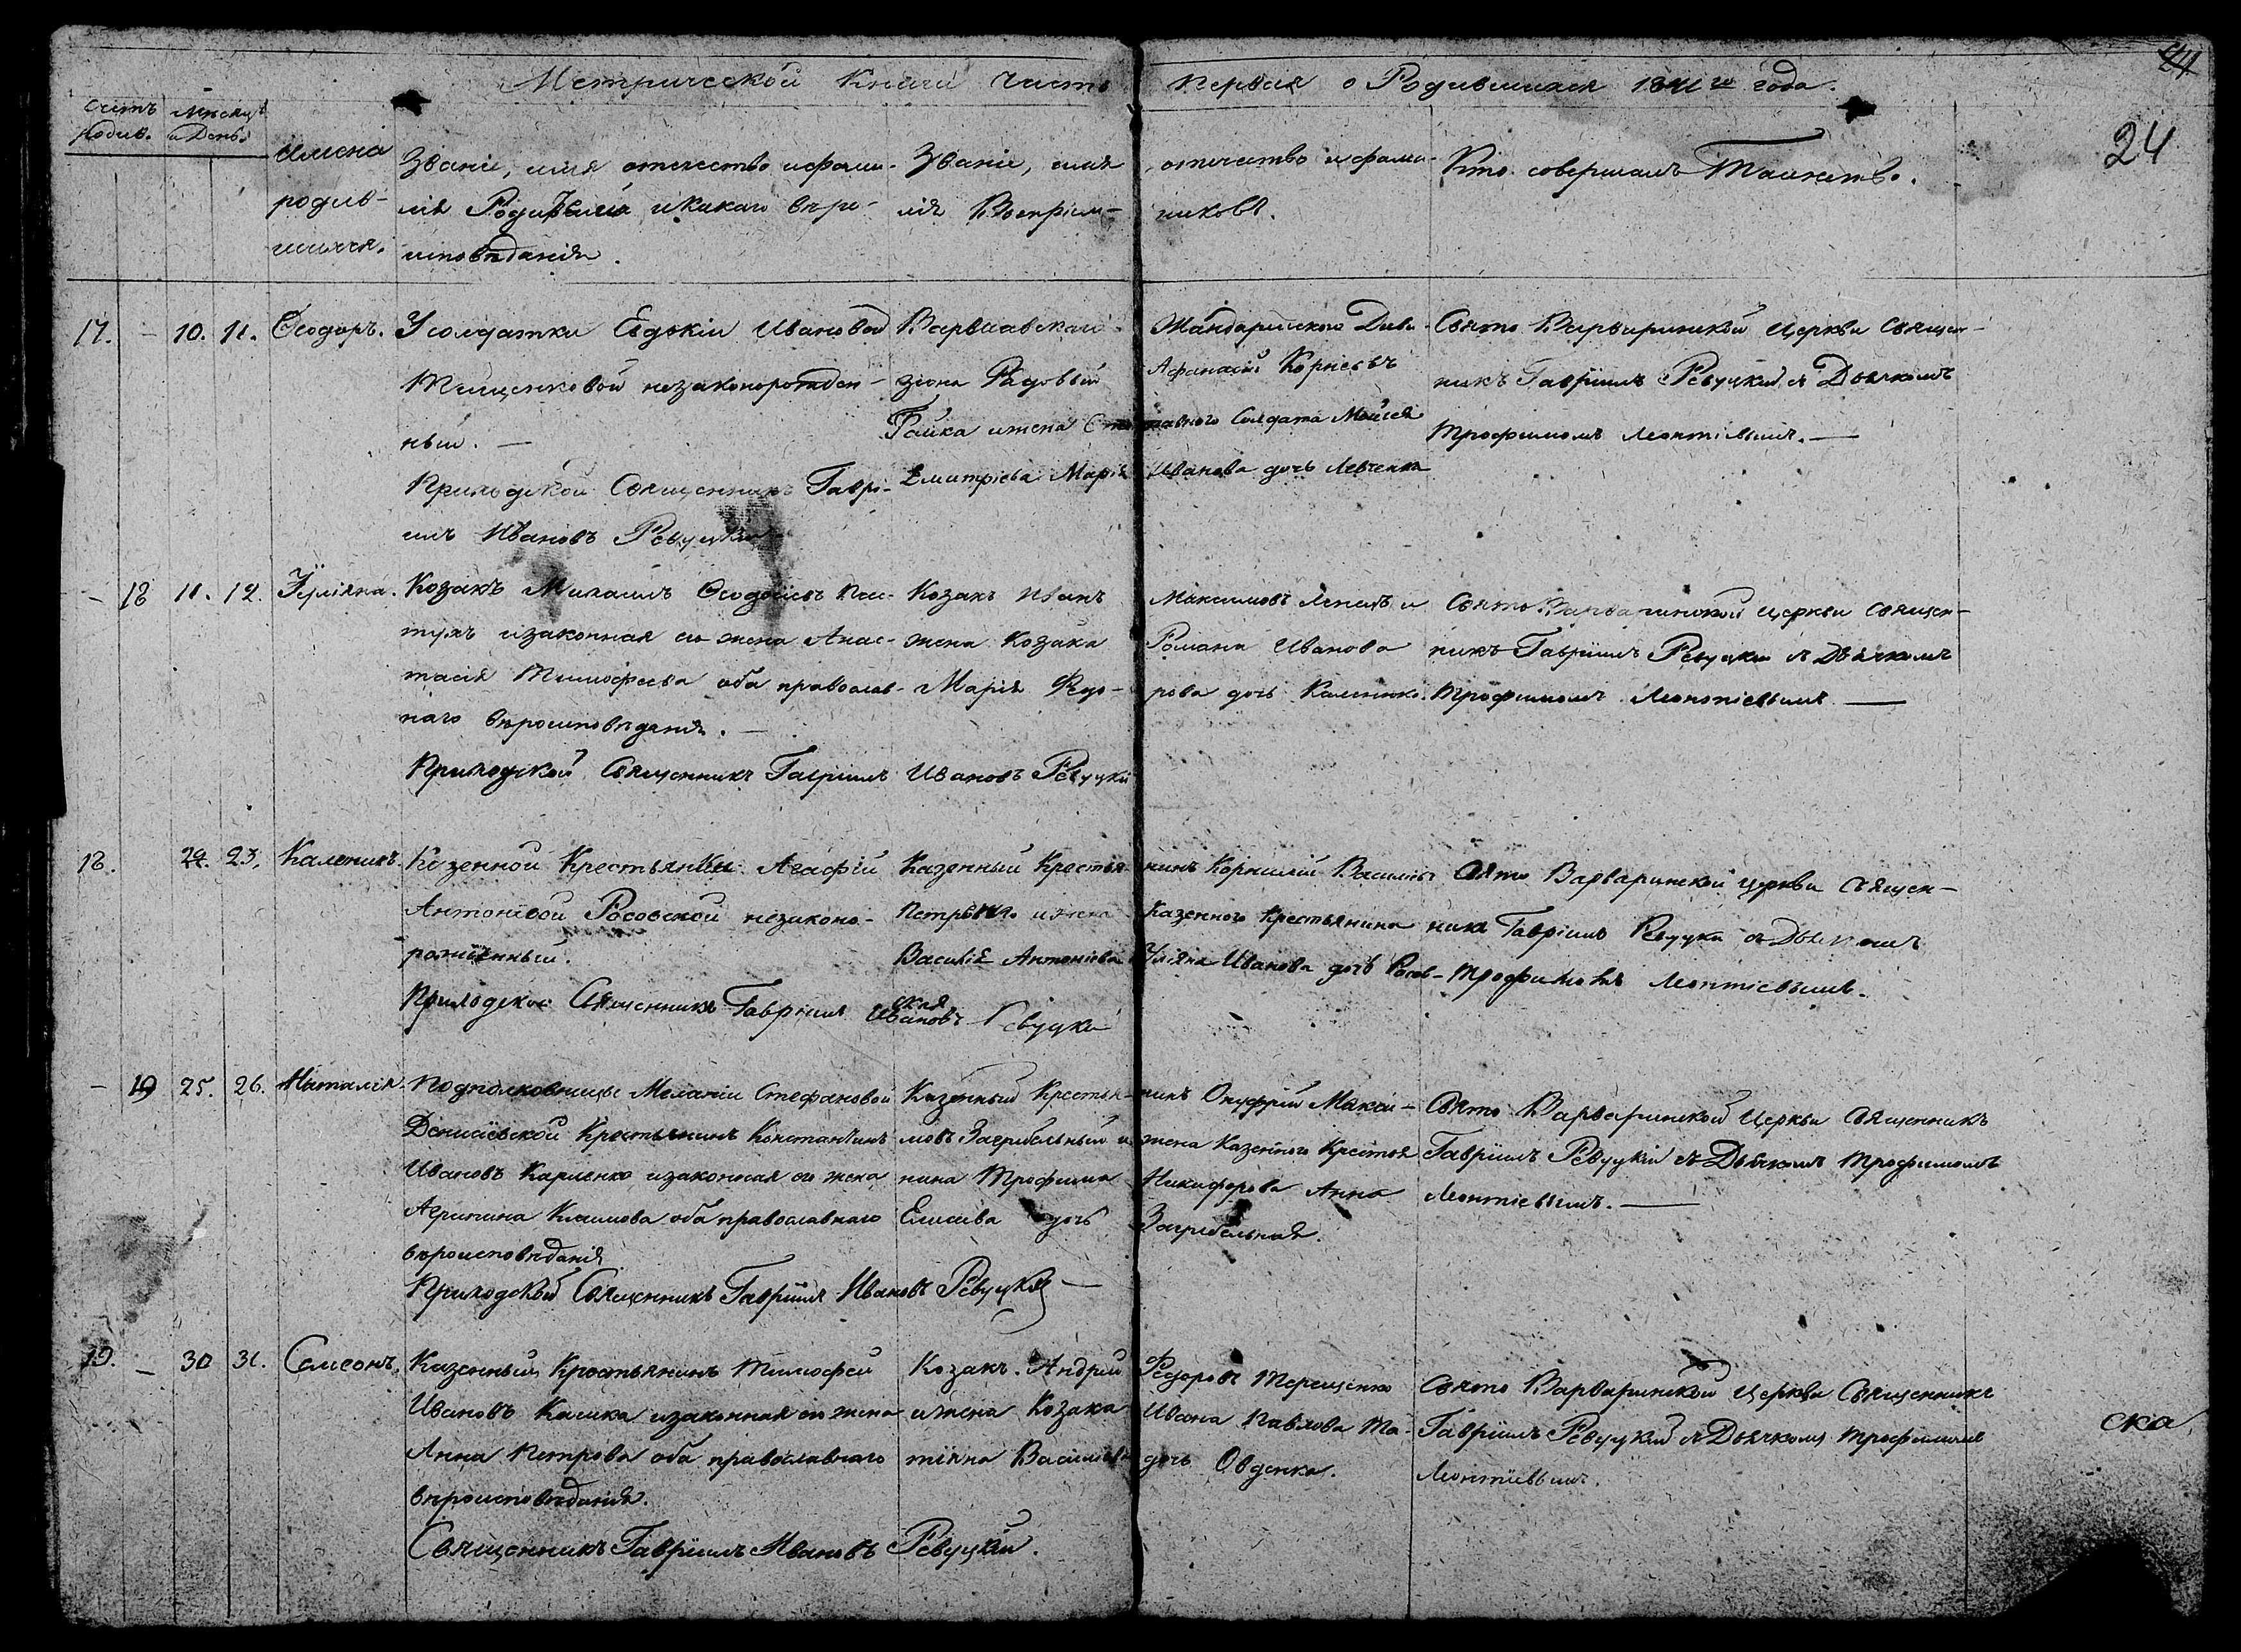 Метрической Книги Часть Первая о Родившихся 1841го года.
24
24
Счетъ родив.
Мѣсяцъ и День.
Имена родив-
шихся.
Званіе, имя отечество и фами-
лія Родителей и какаго вѣро-
исповѣданія.
Званіе, имя отечество и фами-
лія Воспріем-никовъ.
Кто совершалъ Таинство.
17. – 10. 11. Ѳеодоръ.
У солдатки Евдокіи Ивановой
Тищенковой незаконорожден-
ный. —
Приходской Священникъ Гаврі-
илъ Ивановъ Ревуцкій
Варшавскаго Жандармскаго Диви-
зіона Рядовый Афанасій Корнеевъ
Гайка и жена Солдата Мойсея
Дмитріева Марія Иванова дочь Левченка
Свято Варваринской Церкви Священ-
никъ Гавріилъ Ревуцкій съ Дьячкомъ
Трофимомъ Леонтіевымъ. —
– 18 11. 12. Іуліяна.
Козакъ Михаилъ Ѳеодосіевъ
и законная его жена Анас-
тасія Тимофеева оба православ-
наго вѣроисповѣданія. —
Приходской Священникъ Гавріилъ Ивановъ Ревуцкій
Козакъ Иванъ Максимовъ и
жена Козака Романа Иванова
Марія Федо-рова дочь
Свято Варваринской Церкви Священ-
никъ Гавріилъ Ревуцкій съ Дьячкомъ
Трофимомъ Леонтіевымъ —
18. 23. Каленикъ.
Казенной Крестьянки Агафіи
Антоновой Росовской незаконо-
рожденный.
Приходской Священникъ Гавріилъ Ивановъ Ревуцкій
Казенный Крестья-нинъ Корнилій Васильевъ
и жена Казенного Крестьянина
Василія Антонова Уліяна Иванова дочь Росов-
ская
Свято Варваринской Церкви Священ-
никъ Гавріилъ Ревуцкій съ Дьячкомъ
Трофимомъ Леонтіевымъ.
– 19 25. 26. Наталія.
Подполковницы Меланіи Стефановой
Денисевской Крестьянинъ Константинъ
Ивановъ Карпенко и законная его жена
Агрипина Климова оба православнаго
вѣроисповѣданія
Приходской Священникъ Гавріилъ Ивановъ Ревуцкій —
Казенный Крестья-нинъ Онуфрій Макси-
мовъ Загребельный и жена Казенного Крестья
нина Трофима Никифорова Анна
Елисеева дочь Загребельная.
Свято Варваринской Церкви Священникъ
Гавріилъ Ревуцкій съ Дьячкомъ Трофимомъ
Леонтіевымъ. —
19. – 30 31. Самсонъ.
Казенный Крестьянинъ Тимофей
Ивановъ и законная его жена
Анна Петрова оба православнаго
вѣроисповѣданія.
Священникъ Гавріилъ Ивановъ Ревуцкій.
Козакъ Андрій Федоровъ Терещенко
и жена Козака Ивана Павлова Та-
тіяна Васильева дочь Овденка.
Свято Варваринской Церкви Священникъ
Гавріилъ Ревуцкій съ Дьячкомъ Трофимомъ
Леонтіевымъ.
ска